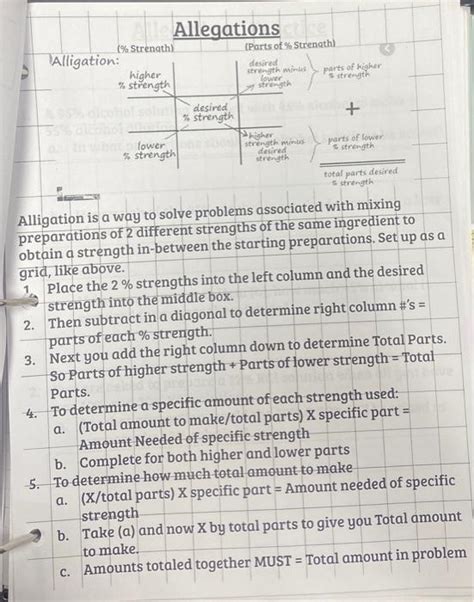 Allegations
(% Strength)
(Parts of % Strength)
Alligation:
higher
% strength
desired
strength minus
lower
strength
parts of higher
% strength
desired
% strength
+
lower
% strength
higher
strength minus
desired
strength
parts of lower
% strength
total parts desired
% strength
Alligation is a way to solve problems associated with mixing
preparations of 2 different strengths of the same ingredient to
obtain a strength in-between the starting preparations. Set up as a
grid, like above.
1. Place the 2 % strengths into the left column and the desired
strength into the middle box.
2. Then subtract in a diagonal to determine right column #'s =
parts of each % strength.
3. Next you add the right column down to determine Total Parts.
So Parts of higher strength + Parts of lower strength = Total
Parts.
4. To determine a specific amount of each strength used:
a. (Total amount to make/total parts) X specific part =
Amount Needed of specific strength
b. Complete for both higher and lower parts
5. To determine how much total amount to make
a. (X/total parts) X specific part = Amount needed of specific
strength
b. Take (a) and now X by total parts to give you Total amount
to make.
c. Amounts totaled together MUST = Total amount in problem